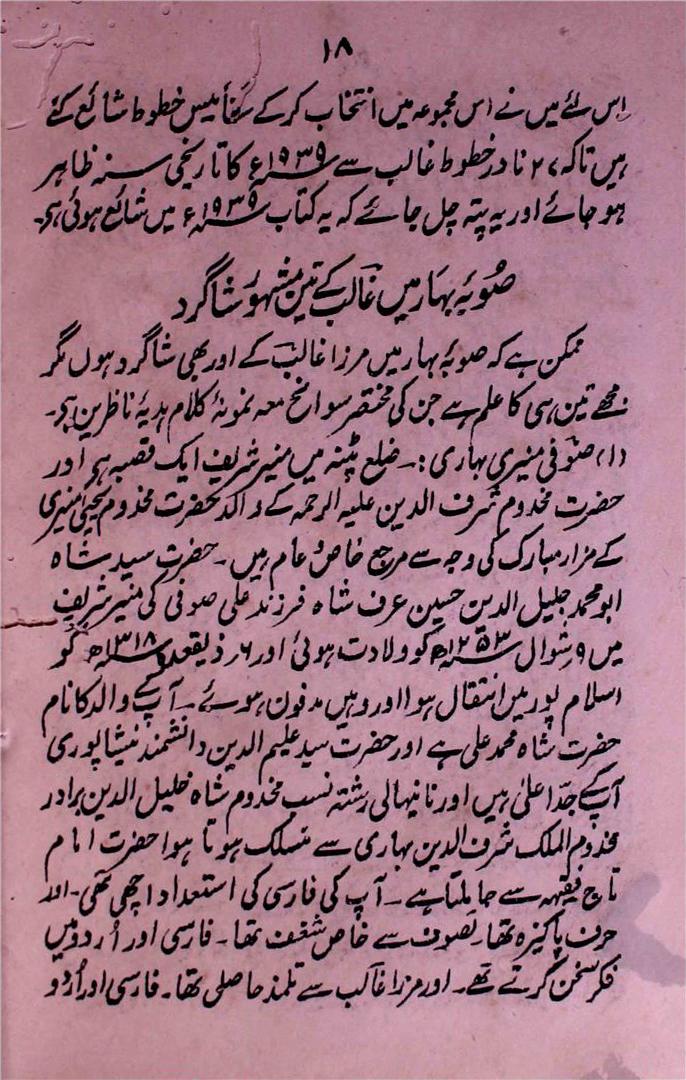 ۱۸
اس لئے میں نے اس مجموعہ میں انتخاب کرکے ستائیس خطوط شائع کئے
ہیں تاکہ ۲۷ نادر خطوط غالب سے ۱۹۳۹ء کا تاریخی سنہ ظاہر
ہو جائے اور یہ پتہ چل جائے کہ یہ کتاب ۱۹۳۹ء میں شائع ہوئی ہے۔
صوبۂ بہار میں غالب کے تین مشہور شاگرد
ممکن ہے کہ صوبۂ بہار میں مرزا غالب کے اور بھی شاگرد ہوں مگر
مجھے تین ہی کا علم ہے جن کی مختصر سوانح معہ نمونۂ کلام ہدیۂ ناظرین ہے۔
(۱) صوفی منیری بہاری :۔ ضلع پٹنہ میں منیر شریف ایک قصبہ ہے اور
حضرت مخدوم شرف الدین علیہ الرحمہ کے والد حضرت مخدوم یحییٰ منیری
کے مزار مبارک کی وجہ سے مرجع خاص و عام ہیں۔ حضرت سید شاہ
ابو محمد جلیل الدین حسین عرف شاہ فرزند علی صوفی کی منیر شریف
میں ۹ر شوال ۱۲۵۳ھ کو ولادت ہوئی اور ۶ر ذیقعدہ ۱۳۱۸ھ کو
اسلام پور میں انتقال ہوا اور وہیں مدفون ہوئے۔ آپ کے والد کا نام
حضرت شاہ محمد علی ہے اور حضرت سید علیم الدین دانشمند نیشاپوری
آپ کے جد اعلیٰ ہیں اور نانیہالی رشتہ نسب مخدوم شاہ خلیل الدین برادر
مخدوم الملک شرف الدین بہاری سے منسلک ہوتا ہوا حضرت امام
تاج فقیہہ سے جا ملتا ہے۔ آپ کی فارسی کی استعداد اچھی تھی۔ اور
حرف پاکیزہ تھا۔ تصوف سے خاص شغف تھا۔ فارسی اور اُردو میں
فکر سخن کرتے تھے۔ اور مرزا غالب سے تلمذ حاصل تھا۔ فارسی اور اُردو